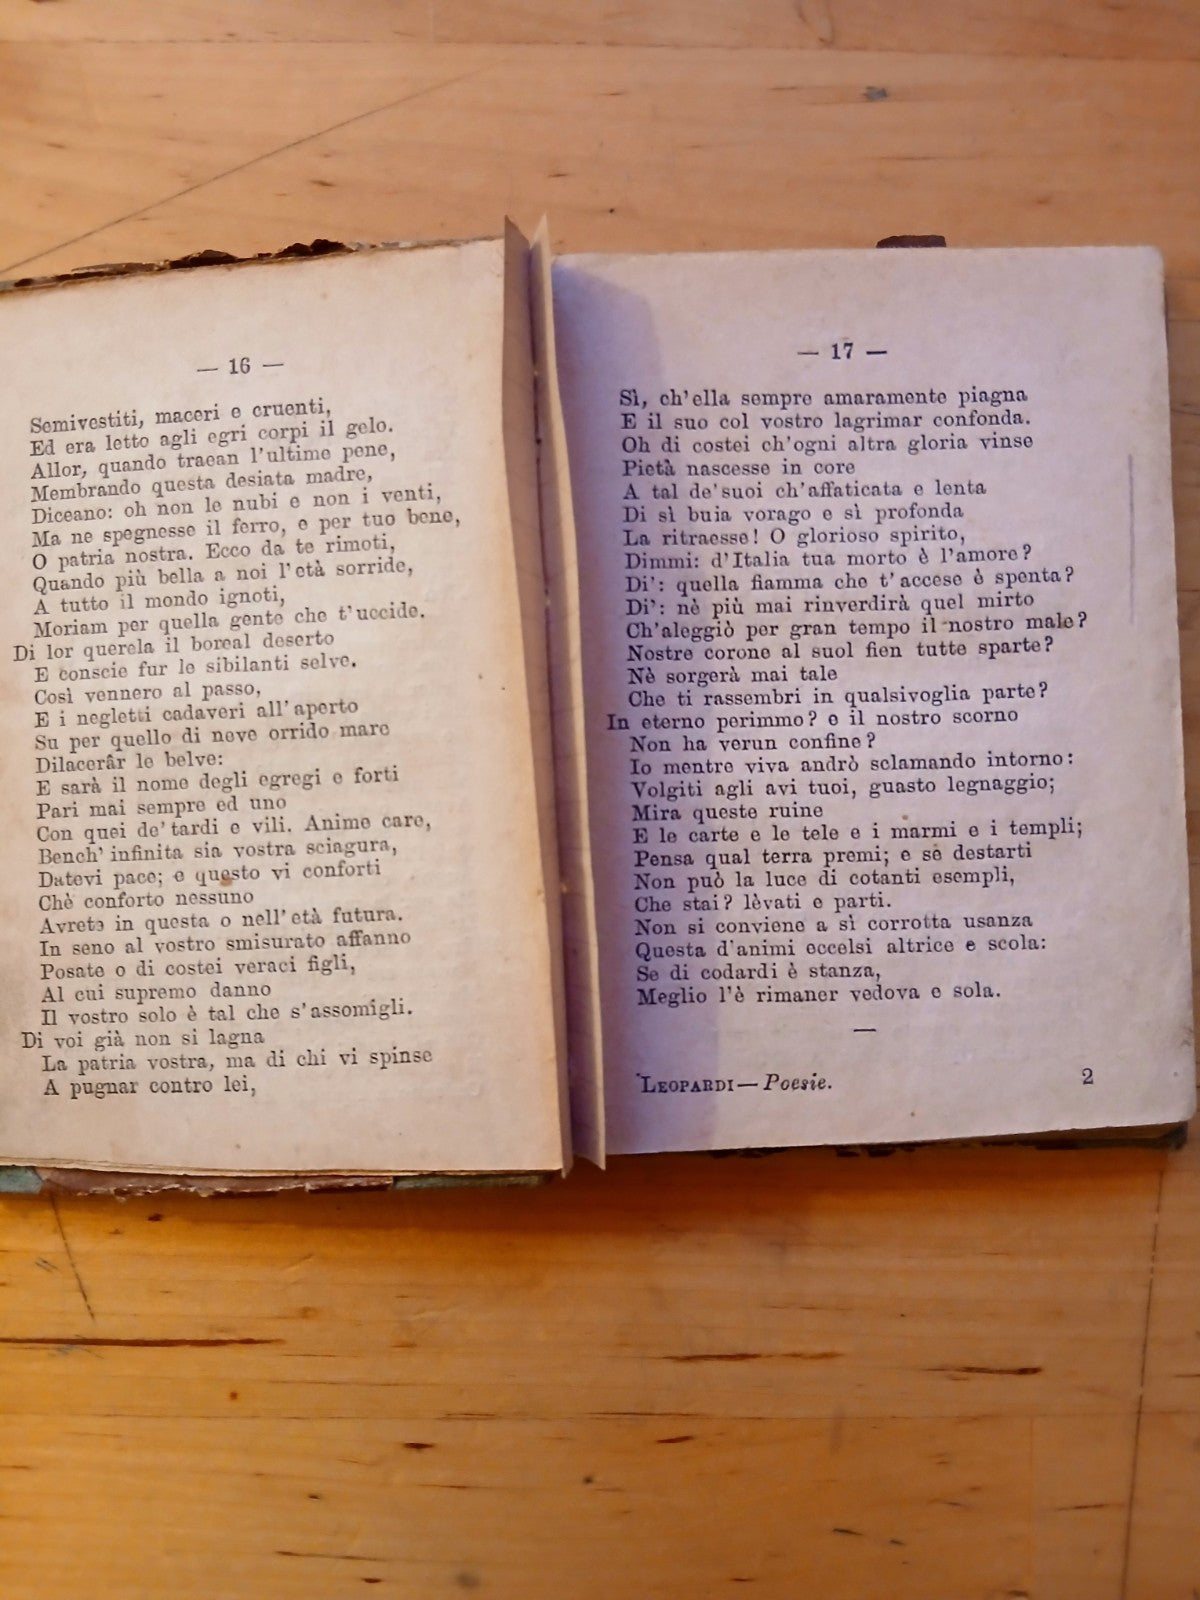 — 16 —
Semivestiti, maceri e cruenti,
Ed era letto agli egri corpi il gelo.
Allor, quando traean l'ultime pene,
Membrando questa desiata madre,
Diceano: oh non le nubi e non i venti,
Ma ne spegnesse il ferro, e per tuo bene,
O patria nostra. Ecco da te rimoti,
Quando più bella a noi l'età sorride,
A tutto il mondo ignoti,
Moriam per quella gente che t'uccide.
Di lor querela il boreal deserto
E conscie fur le sibilanti selve.
Così vennero al passo,
E i negletti cadaveri all'aperto
Su per quello di neve orrido mare
Dilacerâr le belve:
E sarà il nome degli egregi e forti
Pari mai sempre ed uno
Con quei de'tardi e vili. Anime care,
Bench' infinita sia vostra sciagura,
Datevi pace; e questo vi conforti
Chè conforto nessuno
Avrete in questa o nell'età futura.
In seno al vostro smisurato affanno
Posate o di costei veraci figli,
Al cui supremo danno
Il vostro solo è tal che s'assomigli.
Di voi già non si lagna
La patria vostra, ma di chi vi spinse
A pugnar contro lei,
— 17 —
Sì, ch'ella sempre amaramente piagna
E il suo col vostro lagrimar confonda.
Oh di costei ch'ogni altra gloria vinse
Pietà nascesse in core
A tal de'suoi ch'affaticata e lenta
Di sì buia vorago e sì profonda
La ritraesse! O glorioso spirito,
Dimmi: d'Italia tua morto è l'amore?
Di': quella fiamma che t'accese è spenta?
Di': nè più mai rinverdirà quel mirto
Ch'aleggiò per gran tempo il nostro male?
Nostre corone al suol fien tutte sparte?
Nè sorgerà mai tale
Che ti rassembri in qualsivoglia parte?
In eterno perimmo? e il nostro scorno
Non ha verun confine?
Io mentre viva andrò sclamando intorno:
Volgiti agli avi tuoi, guasto legnaggio;
Mira queste ruine
E le carte e le tele e i marmi e i templi;
Pensa qual terra premi; e se destarti
Non può la luce di cotanti esempli,
Che stai? lèvati e parti.
Non si conviene a sì corrotta usanza
Questa d'animi eccelsi altrice e scola:
Se di codardi è stanza,
Meglio l'è rimaner vedova e sola.
LEOPARDI — Poesie. 2